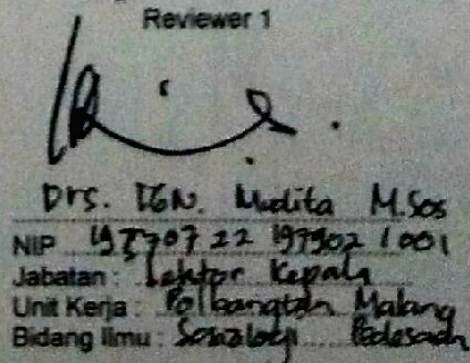 Reviewer 1
Drs. IGN. Mudita M.Sos
NIP 19570722 197902 1 001
Jabatan : Lektor Kepala
Unit Kerja : Polbangtan Malang
Bidang Ilmu : Sosialogi Pedesaan